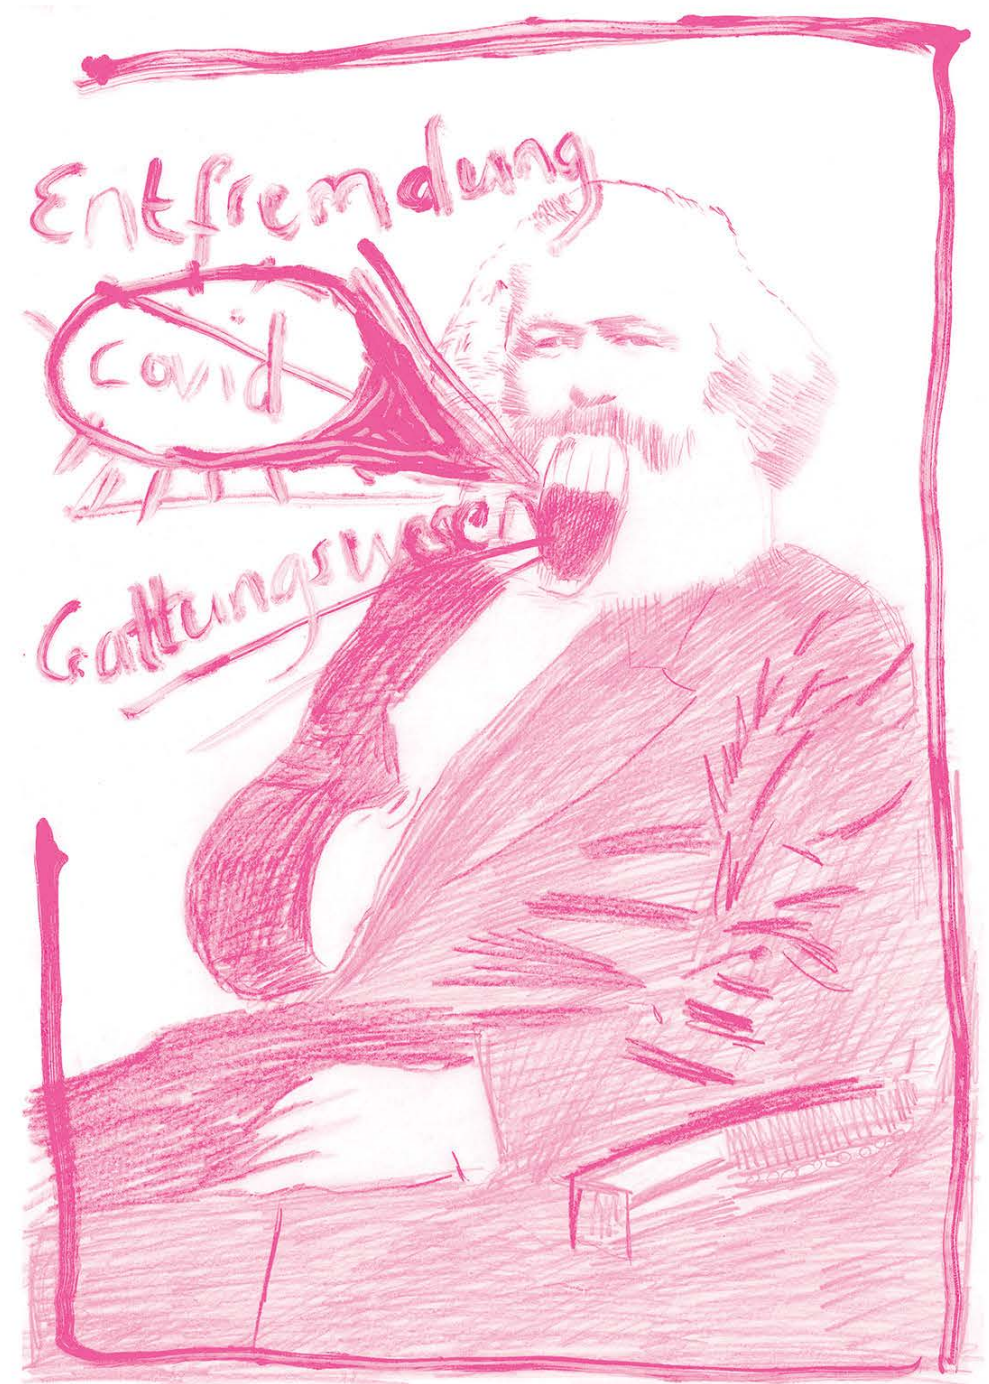 Entfremdung
Covid
Gattungswesen